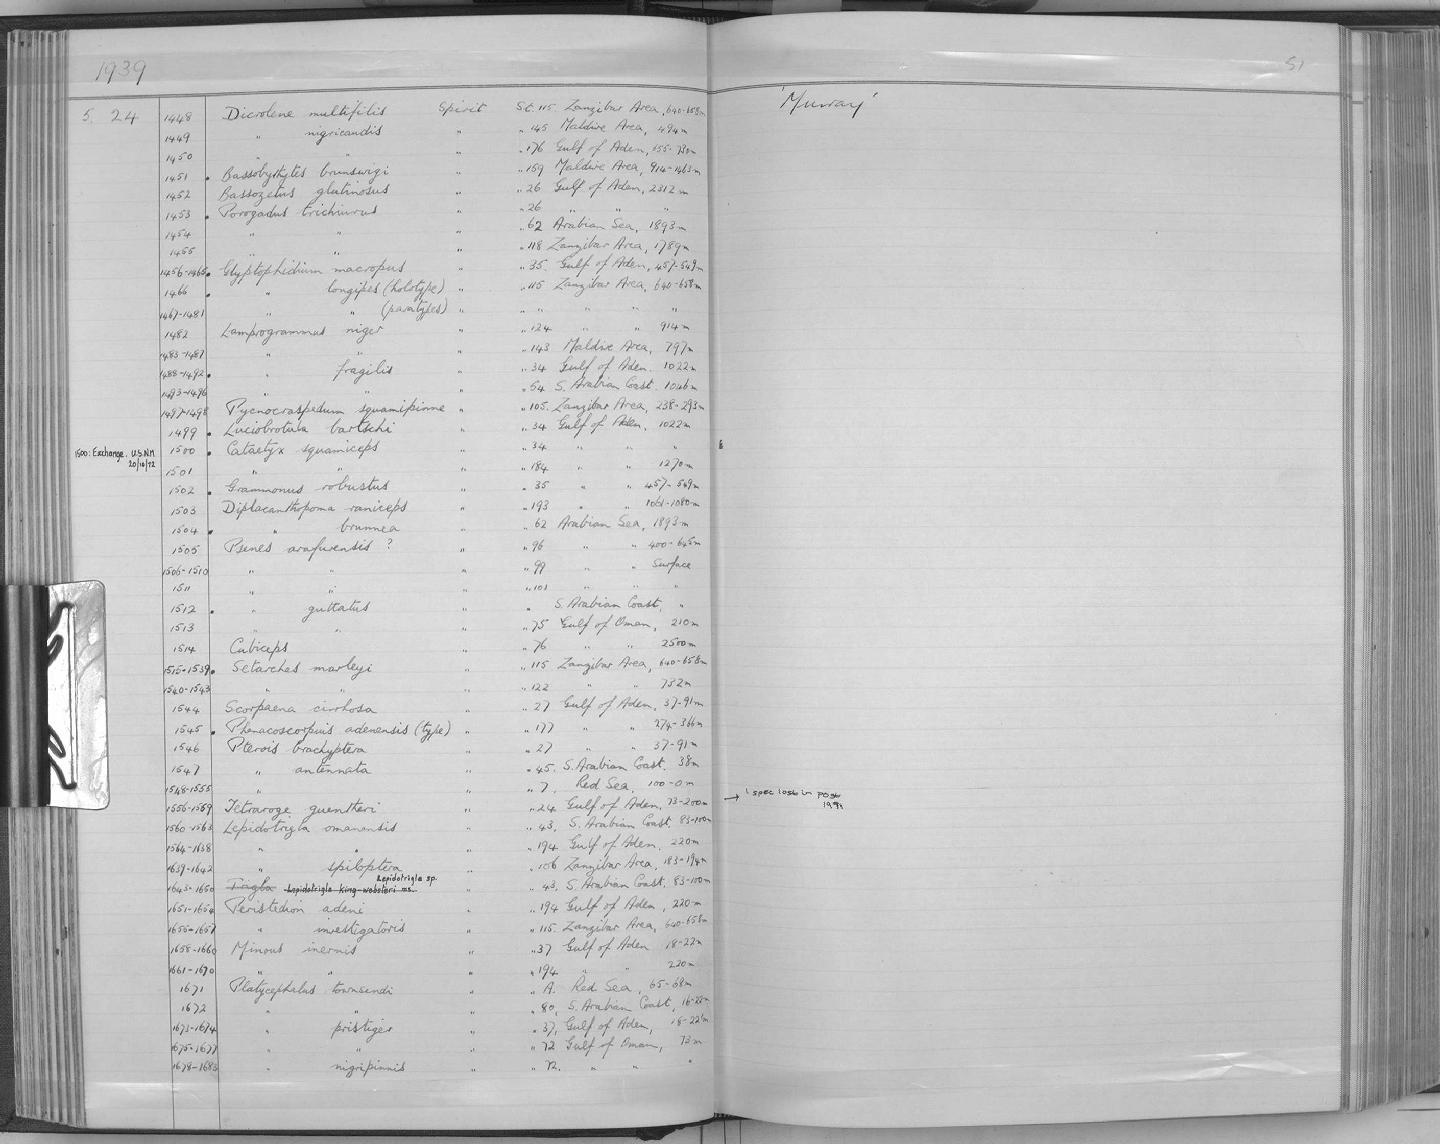 1939
51
5. 24 1448 Dicrolene multifilis Spirit St. 115 Zanzibar Area, 640-658m 'Murray'
1449 " nigricaudis " " 145 Maldive Area, 494m
1450 " " " " 176 Gulf of Aden, 655-730m
1451 . Bassobythytes brunswigi " " 159 Maldive Area, 914-1463m
1452 Bassozetus glutinosus " " 26 Gulf of Aden, 2312m
1453 . Porogadus trichiurus " " 26 " " "
1454 " " " " 62 Arabian Sea, 1893m
1455 " " " " 118 Zanzibar Area, 1789m
1456-1465 . Glyptophidium macropus " " 35. Gulf of Aden, 457-549m
1466 . " longipes (holotype) " " 115 Zanzibar Area, 640-658m
1467-1481 " " (paratypes) " " " " " "
1482 Lamprogrammus niger " " 124 " " 914m
1483-1487 " " " " 143 Maldive Area, 797m
1488-1492 . " fragilis " " 34 Gulf of Aden. 1022m
1493-1496 " " " " 54 S. Arabian Coast. 1046m
1497-1498 Pycnocraspedum squamipinne " " 105. Zanzibar Area, 238-293m
1499 . Luciobrotula bartschi " " 34 Gulf of Aden, 1022m
1500: Exchange. U.S.N.M 1500 . Cataetyx squamiceps " " 34 " " "
20/10/72
1501 " " " " 184 " " 1270m
1502 . Grammonus robustus " " 35 " " 457-549m
1503 Diplacanthopoma raniceps " " 193 " " 1061-1080m
1504 . " brunnea " " 62 Arabian Sea, 1893m
1505 Psenes arafurensis ? " " 96 " " 400-645m
1506-1510 " " " " 99 " " Surface
1511 " " " " 101 " " "
1512 . " guttatus " " S. Arabian Coast, "
1513 " " " " 75 Gulf of Oman, 210m
1514 Cubiceps " " 76 " " 2500m
1515-1539 . Setarches marleyi " " 115 Zanzibar Area, 640-658m
1540-1543 " " " " 122 " " 732m
1544 Scorpaena cirrhosa " " 27 Gulf of Aden, 37-91m
1545 . Phenacoscorpius adenensis (type) " " 177 " " 274-366m
1546 Pterois brachyptera " " 27 " " 37-91m
1547 " antennata " " 45. S. Arabian Coast. 38m
1548-1555 " " " 7. Red Sea, 100-0m
1556-1559 Tetraroge guentheri " " 24 Gulf of Aden, 73-200m → 1 spec lost in post
1999
1560-1563 Lepidotrigla omanensis " " 43, S. Arabian Coast. 83-100m
1564-1638 " " " " 194 Gulf of Aden, 220m
1639-1642 " spiloptera " " 106 Zanzibar Area, 183-194m
Lepidotrigla sp.
1643-1650 Trigla Lepidotrigla king-websteri ms. " " 43, S. Arabian Coast. 83-100m
1651-1654 Peristedion adeni " " 194 Gulf of Aden, 220m
1655-1657 " investigatoris " " 115. Zanzibar Area, 640-658m
1658-1660 Minous inermis " " 37 Gulf of Aden 18-22m
1661-1670 " " " " 194 " " 220m
1671 Platycephalus townsendi " " A. Red Sea, 65-68m
1672 " " " " 80, S. Arabian Coast, 16-22m
1673-1674 " pristiger " " 37, Gulf of Aden, 18-22m
1675-1677 " " " " 72 Gulf of Oman, 73m
1678-1683 " nigripinnis " " 72, " " "